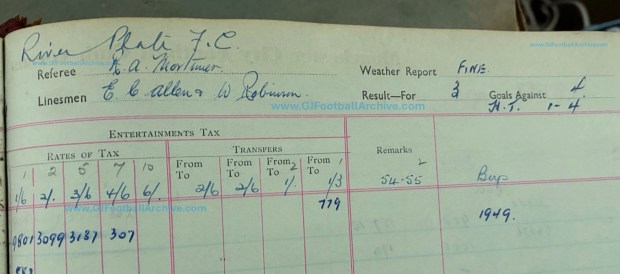 River Plate F.C.
Referee R. A. Mortimer. Weather Report FINE.
Linesmen E. C. Allen & W Robinson. Result—For 3 Goals Against 4
H.T. 1-4
www.GJFootballArchive.com
ENTERTAINMENTS TAX
RATES OF TAX TRANSFERS Remarks
1 2 5 7 10 From To From To From To 2 From To 1 2
1/6 2/. 3/6 4/6 6/. 2/6 2/6 1/. 1/3 54-55
779 1949.
9801 3099 3187 307